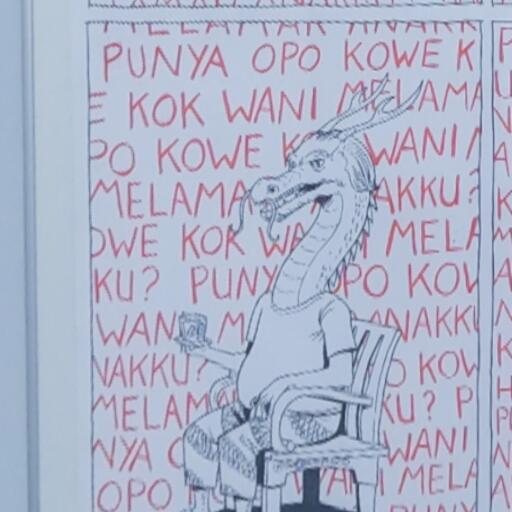 MELAMAR ANAKK
PUNYA OPO KOWE K
E KOK WANI MELAMA
PO KOWE K WANI
MELAMA AKKU?
OWE KOK WA MELA
KU? PUNY OPO KOW
WAN M ANAKKU
NAKKU? O KOW
MELAMA KU? P
NYA WANI
OPO WANI MELA
PUNY